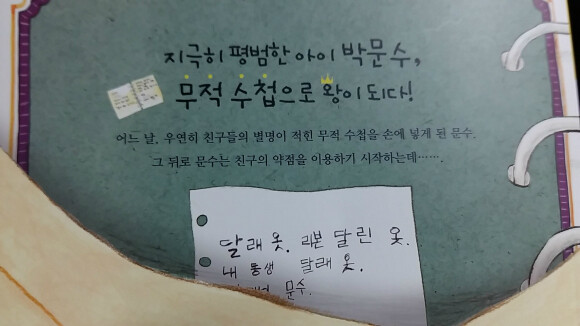 지극히 평범한 아이 박문수,
무적 수첩으로 왕이 되다!
어느 날, 우연히 친구들의 별명이 적힌 무적 수첩을 손에 넣게 된 문수.
그 뒤로 문수는 친구의 약점을 이용하기 시작하는데……
달래 옷. 리본 달린 옷.
내 동생 달래 옷.
문수.